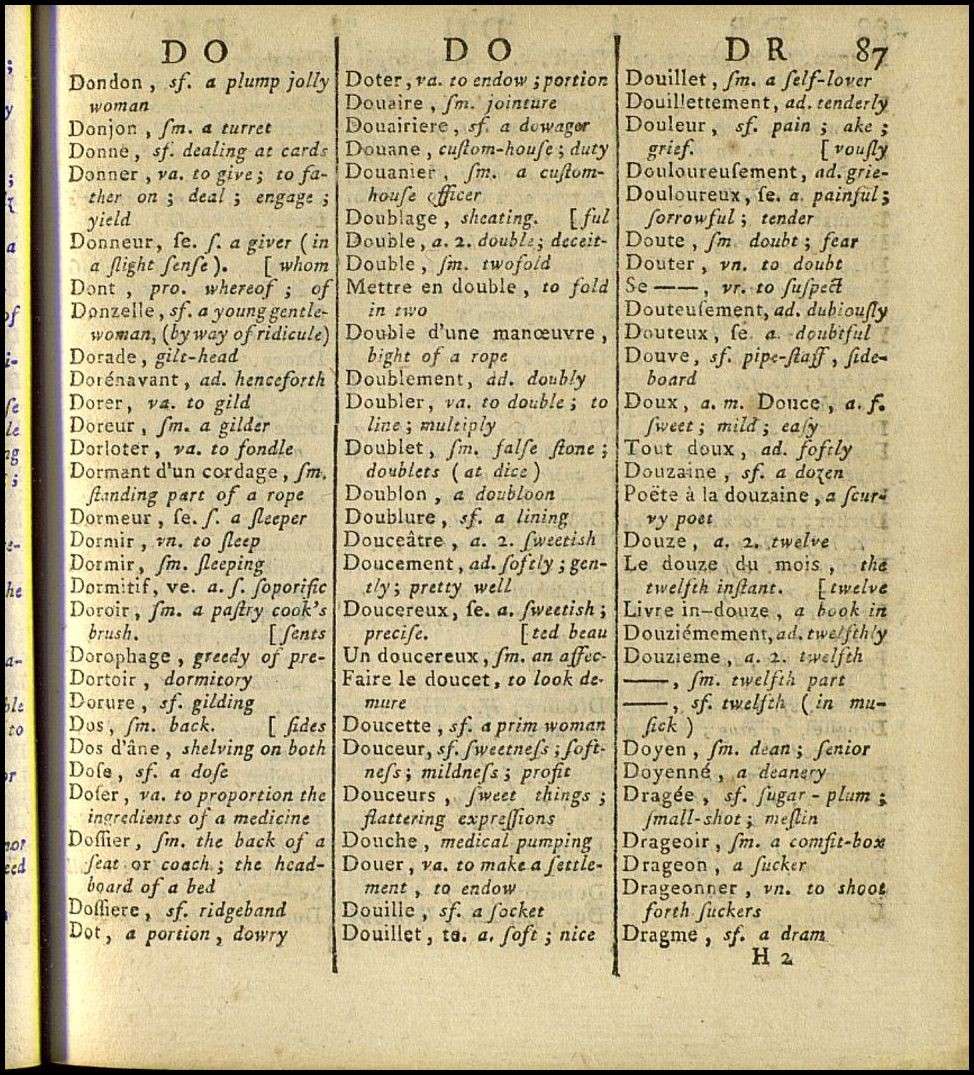 D O
Dondon, ſf. a plump jolly
woman
Donjon, ſm. a turret
Donne, ſf. dealing at cards
Donner, va. to give; to fa-
ther on; deal; engage;
yield
Donneur, ſe. ſ. a giver (in
a ſlight ſenſe). [whom
Dont, pro. whereof; of
Donzelle, ſf. a young gentle-
woman, (by way of ridicule)
Dorade, gilt-head
Dorénavant, ad. henceforth
Dorer, va. to gild
Doreur, ſm. a gilder
Dorloter, va. to fondle
Dormant d'un cordage, ſm.
ſtanding part of a rope
Dormeur, ſe. ſ. a ſleeper
Dormir, vn. to ſleep
Dormir, ſm. ſleeping
Dormitif, ve. a. ſ. ſoporific
Doroir, ſm. a paſtry cook's
brush. [ſents
Dorophage, greedy of pre-
Dortoir, dormitory
Dorure, ſf. gilding
Dos, ſm. back. [ſides
Dos d'âne, shelving on both
Doſe, ſf. a doſe
Doſer, va. to proportion the
ingredients of a medicine
Doſſier, ſm. the back of a
ſeat or coach; the head-
board of a bed
Doſſiere, ſf. ridgeband
Dot, a portion, dowry
D O
Doter, va. to endow; portion
Douaire, ſm. jointure
Douairiere, ſf. a dowager
Douane, cuſtom-houſe; duty
Douanier, ſm. a cuſtom-
houſe officer
Doublage, sheating. [ful
Double, a. 2. double; deceit-
Double, ſm. twofold
Mettre en double, to fold
in two
Double d'une manœuvre,
bight of a rope
Doublement, ad. doubly
Doubler, va. to double; to
line; multiply
Doublet, ſm. falſe ſtone;
doublets (at dice)
Doublon, a doubloon
Doublure, ſf. a lining
Douceâtre, a. 2. ſweetish
Doucement, ad. ſoftly; gen-
tly; pretty well
Doucereux, ſe. a. ſweetish;
preciſe. [ted beau
Un doucereux, ſm. an affec-
Faire le doucet, to look de-
mure
Doucette, ſf. a prim woman
Douceur, ſf. ſweetneſs; ſoft-
neſs; mildneſs; profit
Douceurs, ſweet things;
flattering expreſſions
Douche, medical pumping
Douer, va. to make a ſettle-
ment, to endow
Douille, ſf. a ſocket
Douillet, te. a. ſoft; nice
D R 87
Douillet, ſm. a ſelf-lover
Douillettement, ad. tenderly
Douleur, ſf. pain; ake;
grief. [vouſly
Douloureuſement, ad. grie-
Douloureux, ſe. a. painful;
ſorrowful; tender
Doute, ſm. doubt; fear
Douter, vn. to doubt
Se ——, vr. to ſuſpect
Douteuſement, ad. dubiouſly
Douteux, ſe. a. doubtful
Douve, ſf. pipe-ſtaff, ſide-
board
Doux, a. m. Douce, a. f.
ſweet; mild; eaſy
Tout doux, ad. ſoftly
Douzaine, ſf. a dozen
Poëte à la douzaine, a ſcur-
vy poet
Douze, a. 2. twelve
Le douze du mois, the
twelfth inſtant. [twelve
Livre in-douze, a book in
Douziémement, ad. twelfthly
Douzieme, a. 2. twelfth
——, ſm. twelfth part
——, ſf. twelfth (in mu-
ſick)
Doyen, ſm. dean; ſenior
Doyenné, a deanery
Dragée, ſf. ſugar-plum;
ſmall-shot; meſlin
Drageoir, ſm. a comfit-box
Drageon, a ſucker
Drageonner, vn. to shoot
forth ſuckers
Dragme, ſf. a dram
H 2